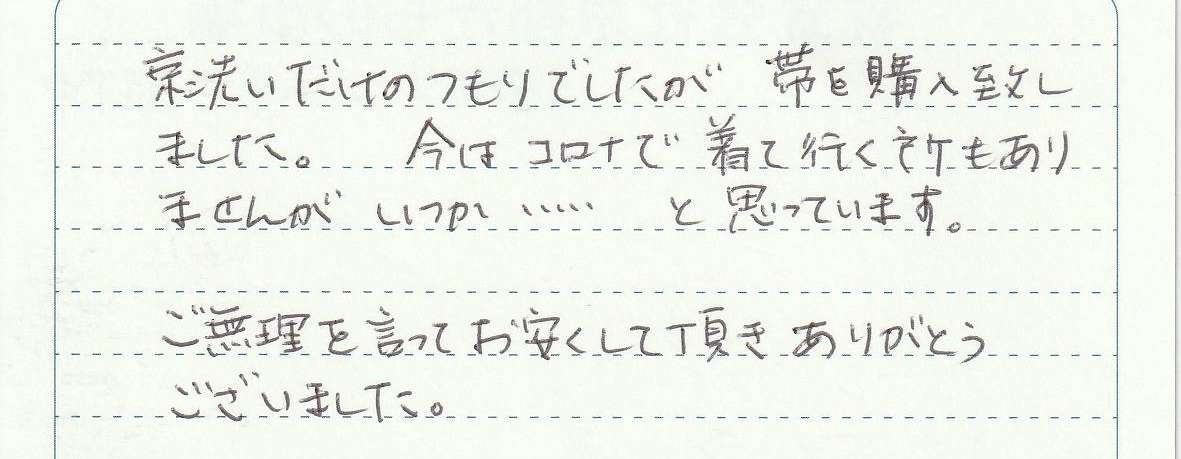 京洗いだけのつもりでしたが 帯を購入致し
ました。 今はコロナで着て行く所もあり
ませんが いつか…… と思っています。
ご無理を言ってお安くして頂きありがとう
ございました。